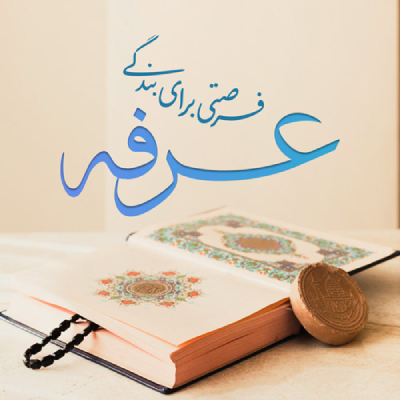 فرصتی برای بندگی
عرفه